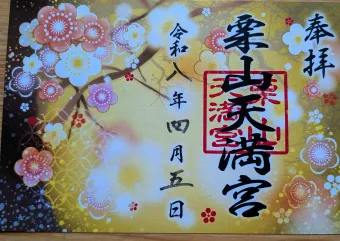 奉拝
栗山天満宮
令和八年四月五日
栗山天満宮